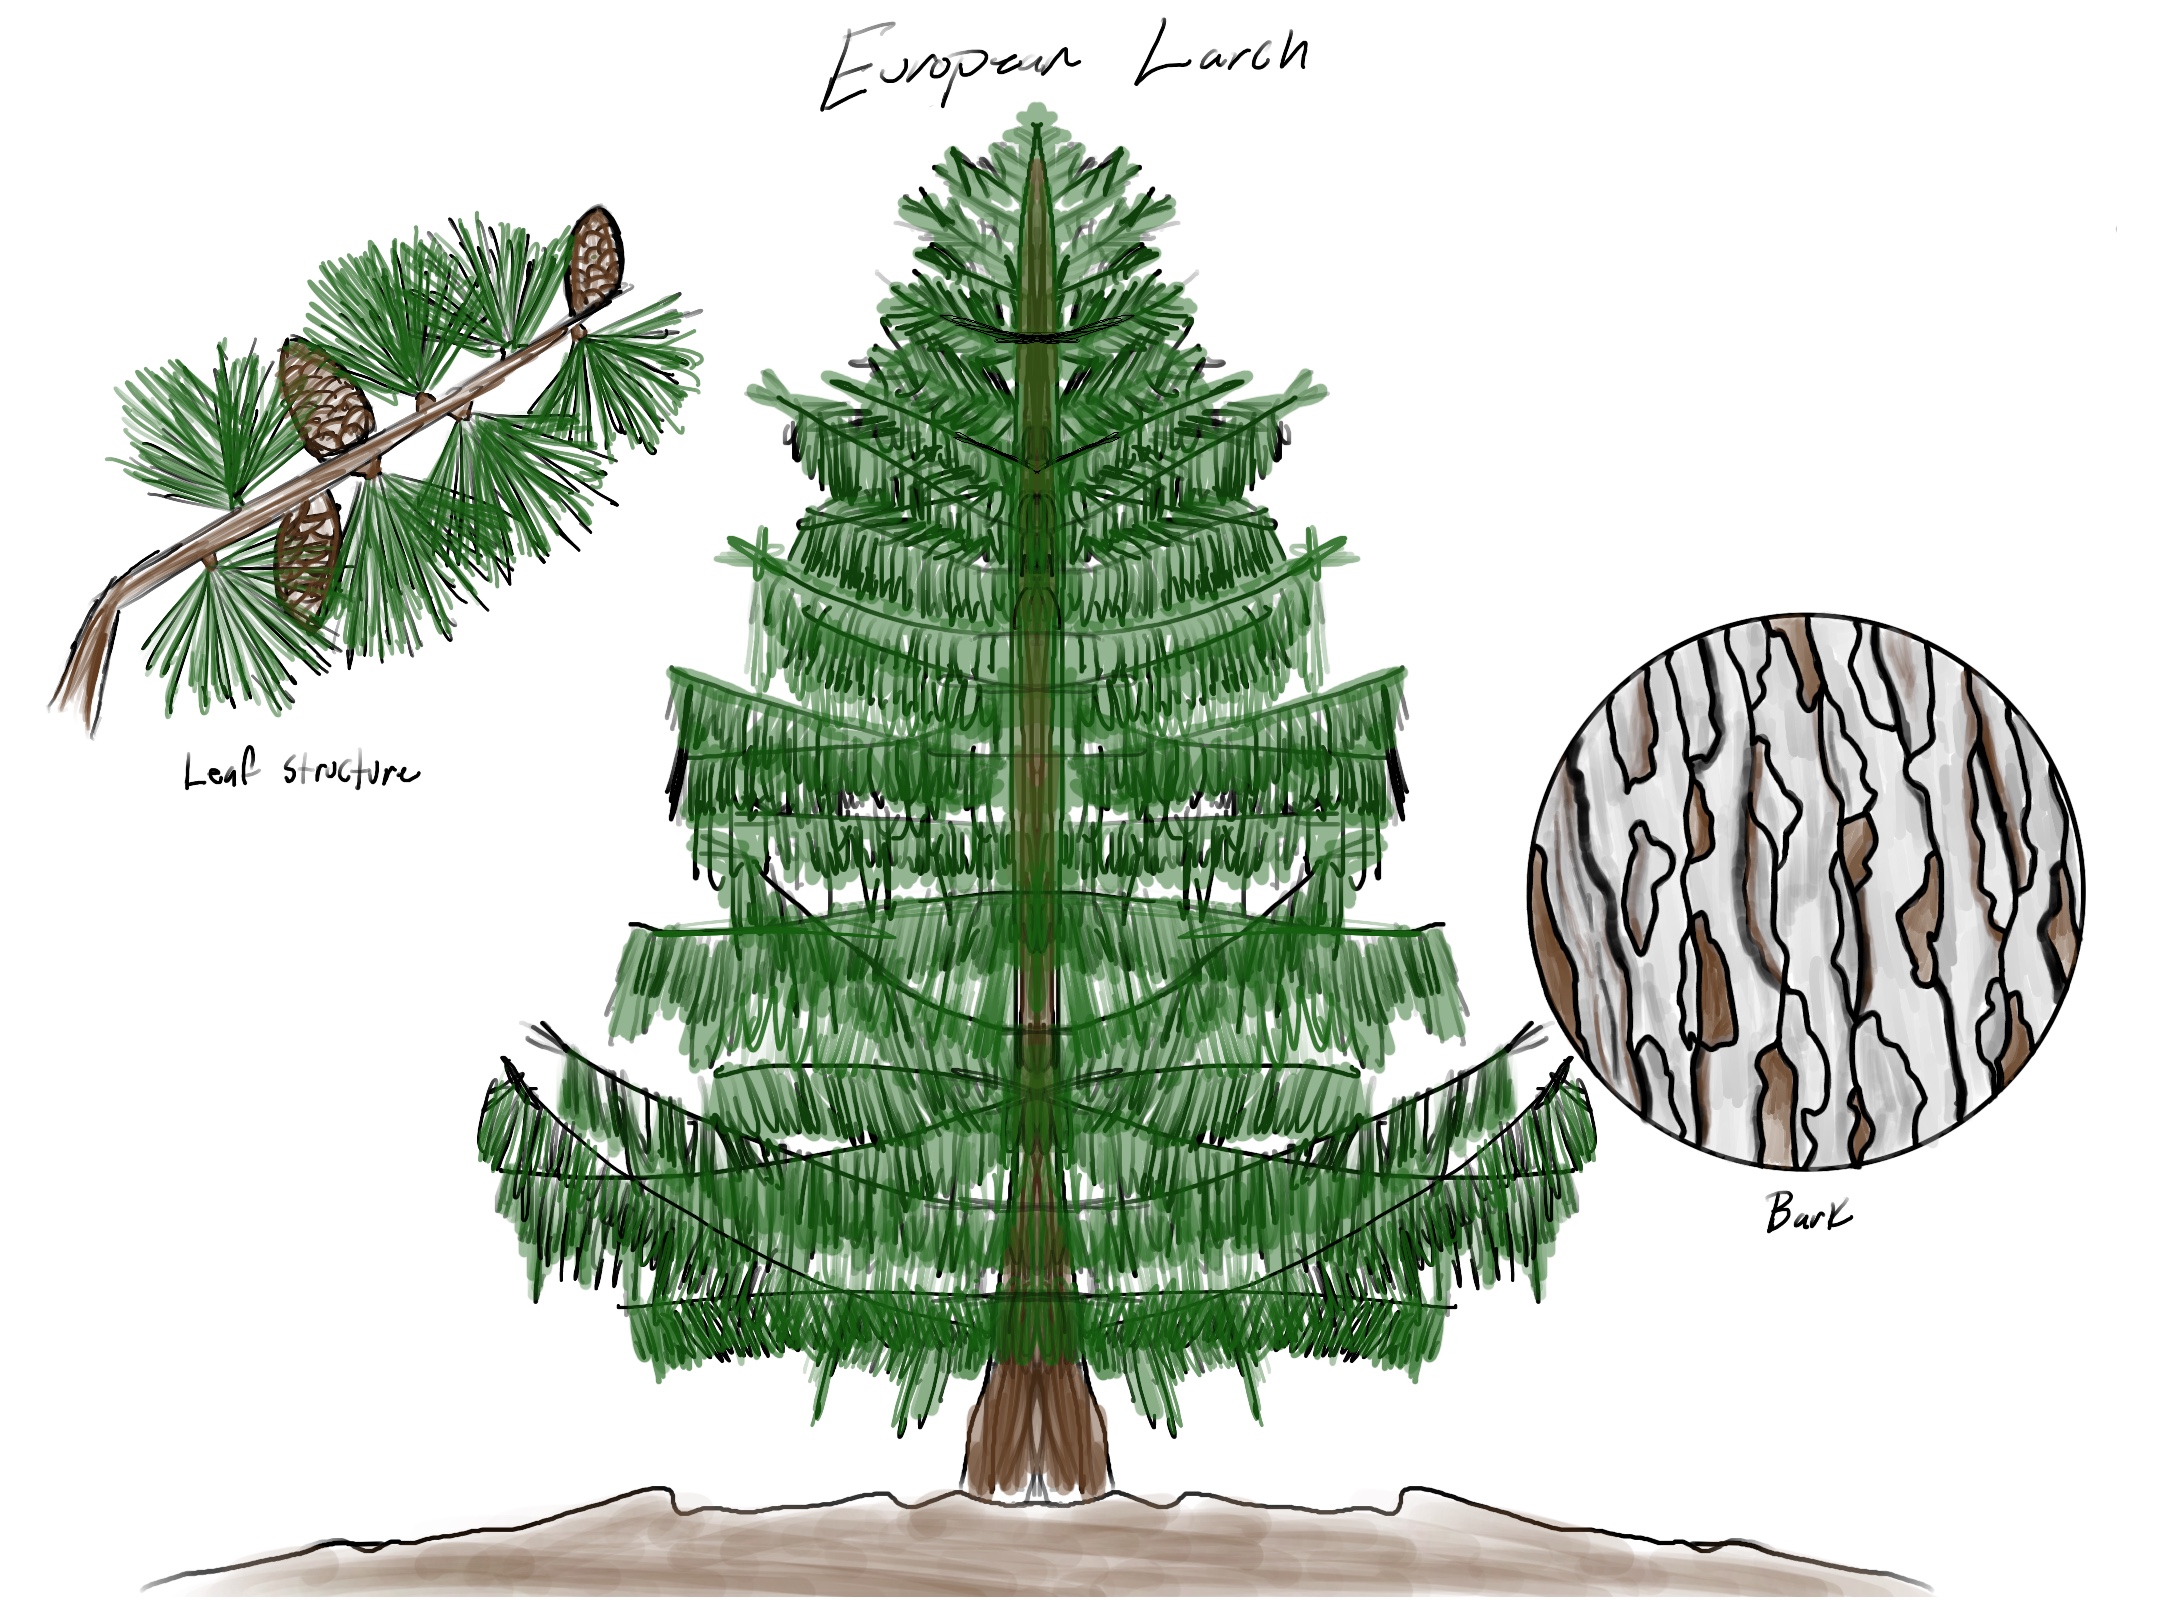 European Larch
Leaf structure
Bark